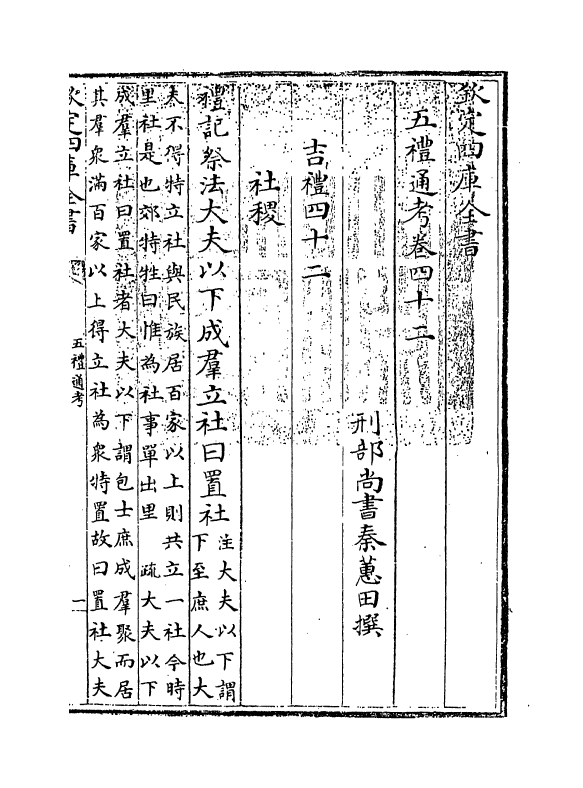 欽定四庫全書
五禮通考卷四十二
刑部尚書秦蕙田撰
吉禮四十二
社稷
禮記祭法大夫以下成羣立社曰置社
注大夫以下謂
下至庶人也大
夫不得特立社與民族居百家以上則共立一社今時
里社是也郊特牲曰惟為社事單出里　疏大夫以下
成羣立社曰置社者大夫以下謂包士庶成羣聚而居
其羣衆滿百家以上得立社為衆特置故曰置社大夫
欽定四庫全書
五禮通考
一